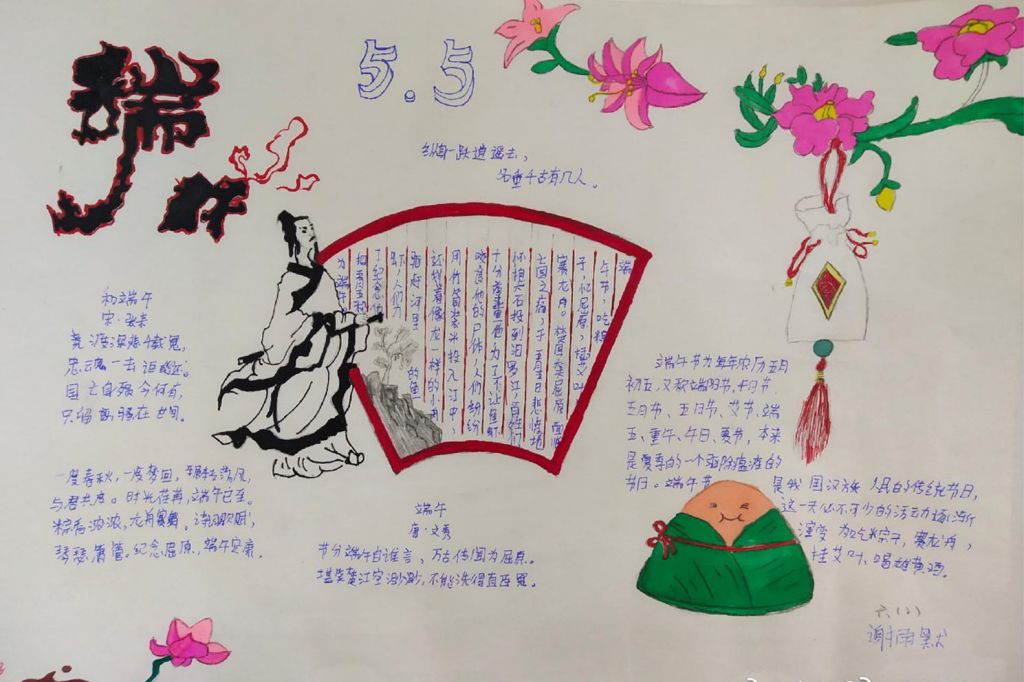 端
午
5.5
纵海一跃逍遥去，
名垂千古有几人。
端
午节，吃粽
子，忆屈原，挂艾叶，
赛龙舟。楚国大夫屈原，面临
亡国之痛，于五月五日悲愤地
怀抱大石投到汨罗江，百姓们
十分尊重他，为了不让鱼虾
啃食他的尸体，人们纷纷
用竹筒装米投入江中，
还划着像龙一样的小舟，
的鱼
虾，人们为
了纪念他，
为端午
和端午
宋·张耒
竞渡深悲千载冤，
忠魂一去讵能还。
国亡身殒今何有，
只留离骚在世间。
一度春秋，一度梦回，
与君共度。时光荏苒，端午已至。
粽香浓浓，龙舟赛舞。
琴瑟萧管。纪念屈原，端午安康。
端午
唐·文秀
节分端午自谁言，万古传闻为屈原。
堪笑楚江空渺渺，不能洗得直臣冤。
端午节为每年农历五月
初五，又称端阳节，午日节、
五月节、五日节、艾节、端
五、重午、午日、夏节，本来
是夏季的一个驱除瘟疫的
节日。端午节是我国汉族人民的传统节日，
这一天必不可少的活动逐渐
演变为吃粽子，赛龙舟，
挂艾叶、喝雄黄酒。
六（2）
谢雨默